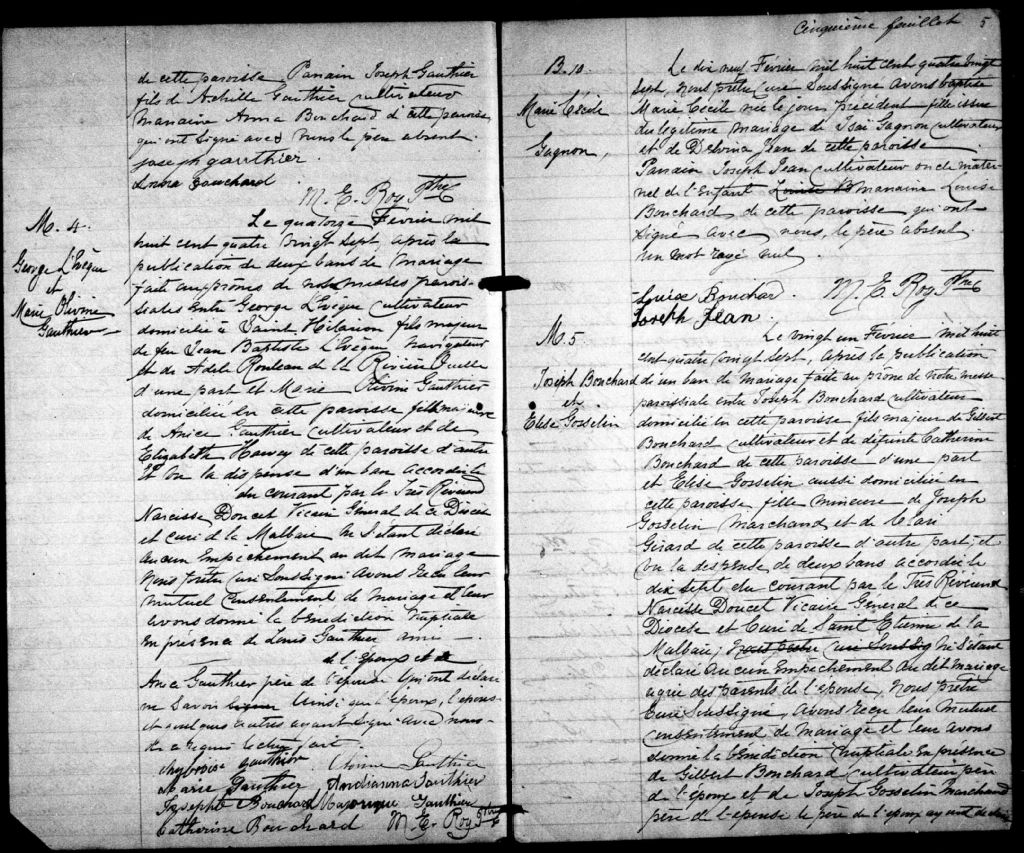 de cette paroisse Parrain Joseph Gauthier
fils d'Achille Gauthier cultivateur
marraine Anna Bouchard d cette paroisse
qui ont signé avec nous le père absent.
joseph gauthier.
Bouchard
M. E. Roy Ptre
M. 4.
George L'Evêque
et
Marie Olivine
Gauthier
Le quatorze Février mil
huit cent quatre vingt sept, après la
publication de deux bans de mariage
faite au prônes de nos messes parois-
siales entre George L'Evêque cultivateur
domicilié à Saint Hilarion fils majeur
de feu Jean Baptiste L'Evêque navigateur
et de Adele Rouleau de la Rivière Ouelle
d'une part et Marie Olivine Gauthier
domiciliée en cette paroisse fille majeure
de Anice Gauthier cultivateur et de
Elizabeth Harvey de cette paroisse d'autre
Et vu la dispense d'un ban accordée
du courant par le Très Révérend
Narcisse Doucet Vicaire Général de ce Diocèse
et curé de la Malbaie ne s'étant déclaré
aucun empêchement au dit mariage
Nous Prêtre curé soussigné avons reçu leur
mutuel consentement de mariage et leur
avons donné la bénédiction nuptiale
en présence de Louis Gauthier ami
de l'époux et de
Anice Gauthier père de l'épouse qui ont déclaré
ne savoir signer ainsi que l'époux, l'épouse
et quelques autres ayant signé avec nous
de ce requis lecture faite.
Ambroise gauthier
Gauthier
Marie Gauthier Andianna Gauthier
Joseph Bouchard Gauthier
Catherine Bouchard M. E. Roy Ptre
Cinquième feuillet 5
B. 10.
Marie Cécile
Gagnon,
Le dix neuf Février mil huit cent quatre vingt
sept, nous prêtre curé soussigné avons baptisé
Marie Cécil née le jour précédent fille issue
du légitime mariage de Isaï Gagnon cultivateur
et de Delvina Jean de cette paroisse
Parrain Joseph Jean cultivateur oncle mater-
nel de l'enfant Louise B marraine Louise
Bouchard de cette paroisse qui ont
signé avec nous, le père absent.
Un mot rayé nul
Louise Bouchard. M. E. Roy Ptre
Joseph Jean.
M. 5.
Joseph Bouchard
et
Elise Gosselin
Le vingt un Février mil huit
cent quatre vingt sept, après la publication
d'un ban de mariage faite au prône de notre messe
paroissiale entre Joseph Bouchard cultivateur
domicilié en cette paroisse fils majeur de Gilbert
Bouchard cultivateur et de défunte Catherine
Bouchard de cette paroisse d'une part
et Elise Gosselin aussi domiciliée en
cette paroisse fille mineure de Joseph
Gosselin Marchand et de
Girard de cette paroisse d'autre part, et
vu la dispense de deux bans accordée le
dix sept du courant par le Très Révérend
Narcisse Doucet Vicaire Général de ce
Diocèse et Curé de Saint Etienne de la
Malbaie, Nous prêtre curé soussig ne s'étant
déclaré aucun empêchement au dit mariage
agréé des parents de l'épouse, Nous prêtre
Curé soussigné, avons reçu leur mutuel
consentement de mariage et leur avons
donné la bénédiction nuptiale en présence
de Gilbert Bouchard cultivateur père
de l'époux et de Joseph Gosselin marchand
père de l'épouse le père de l'époux ayant déclaré